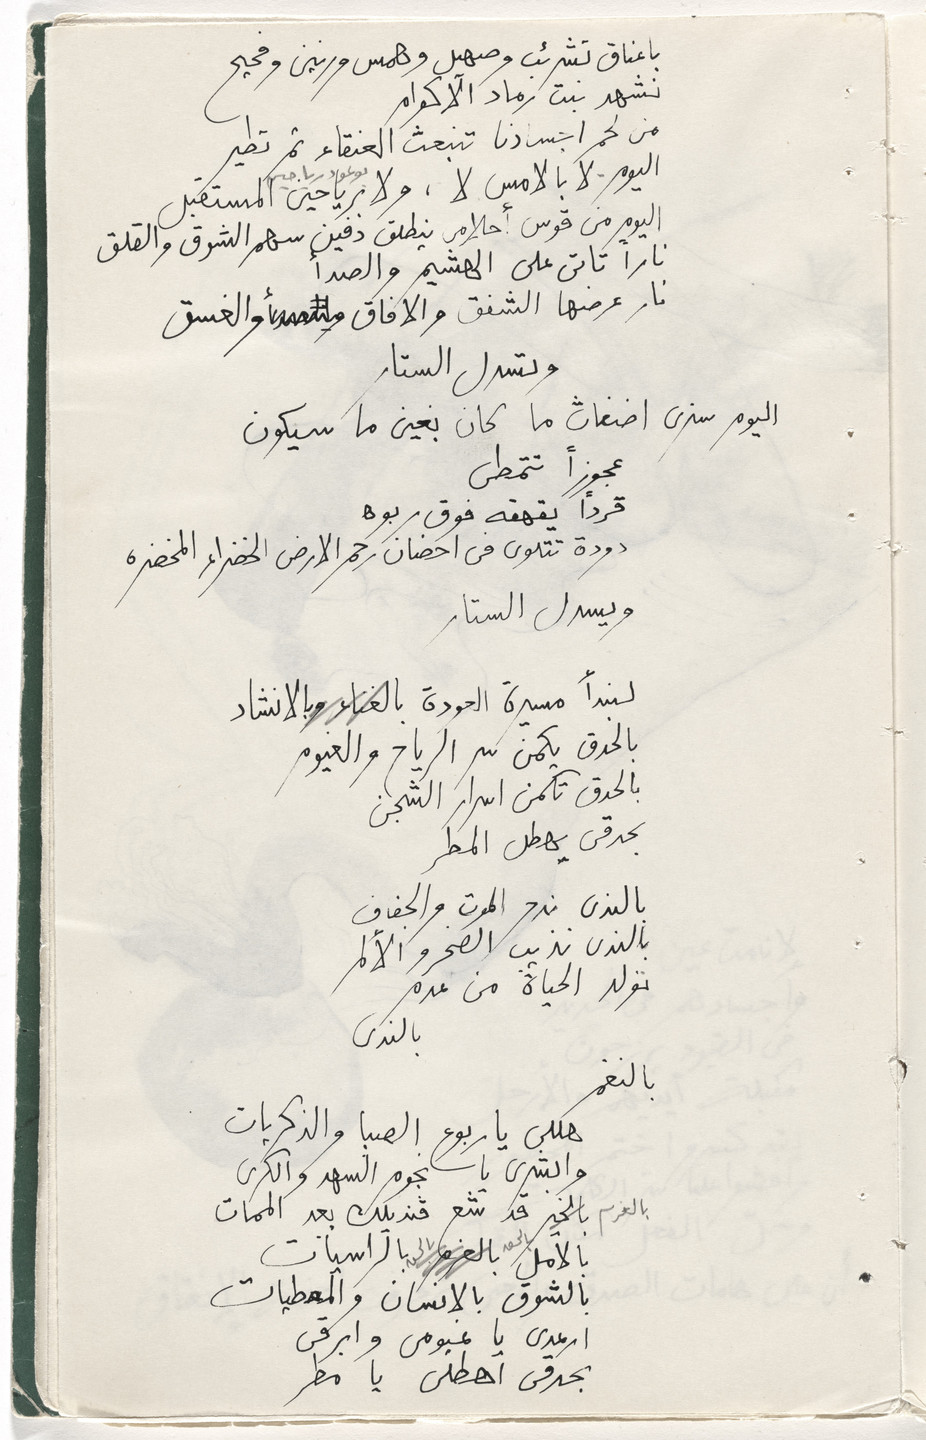 باعناق تشرئب وصهيل وهمس ورنين وفحيح
نشهد نبت رماد الاكوام
من لحم اجسادنا تنبعث العنقاء ثم تطير
اليوم لا بالامس لا ، ولا برياحين المستقبل
اليوم من قوس أحلام ينطلق دفين سهم الشوق والقلق
ناراً تاتى على الهشيم والصدأ
نار عرضها الشفق والافاق والغسق
ويسدل الستار
اليوم سنرى اضغاث ما كان بعين ما سيكون
عجوزاً تتمطى
قرداً يقهقه فوق ربوه
دودة تتلوى فى احضان رحم الارض الخضراء المخضره
ويسدل الستار
لنبدأ مسيرة العودة بالغناء وبالانشاد
بالحدق يكمن سر الرياح والغيوم
بالحدق تكمن اسرار الشجن
بحدقى يهطل المطر
بالندى ندحر الموت والجفاف
بالندى نذيب الصخر والألم
نولد الحياة من عدم
بالندى
بالنغم
هللى ياربوع الصبا والذكريات
وابشرى يا نجوم السهد والكرى
بالعزم
بالخير قد شع قنديلك بعد الممات
بالأمل بالعزم بالراسيات
بالشوق بالانسان والمعطيات
ارعدى يا غيومى وابرقى
بحدقى اهطلى يا مطر